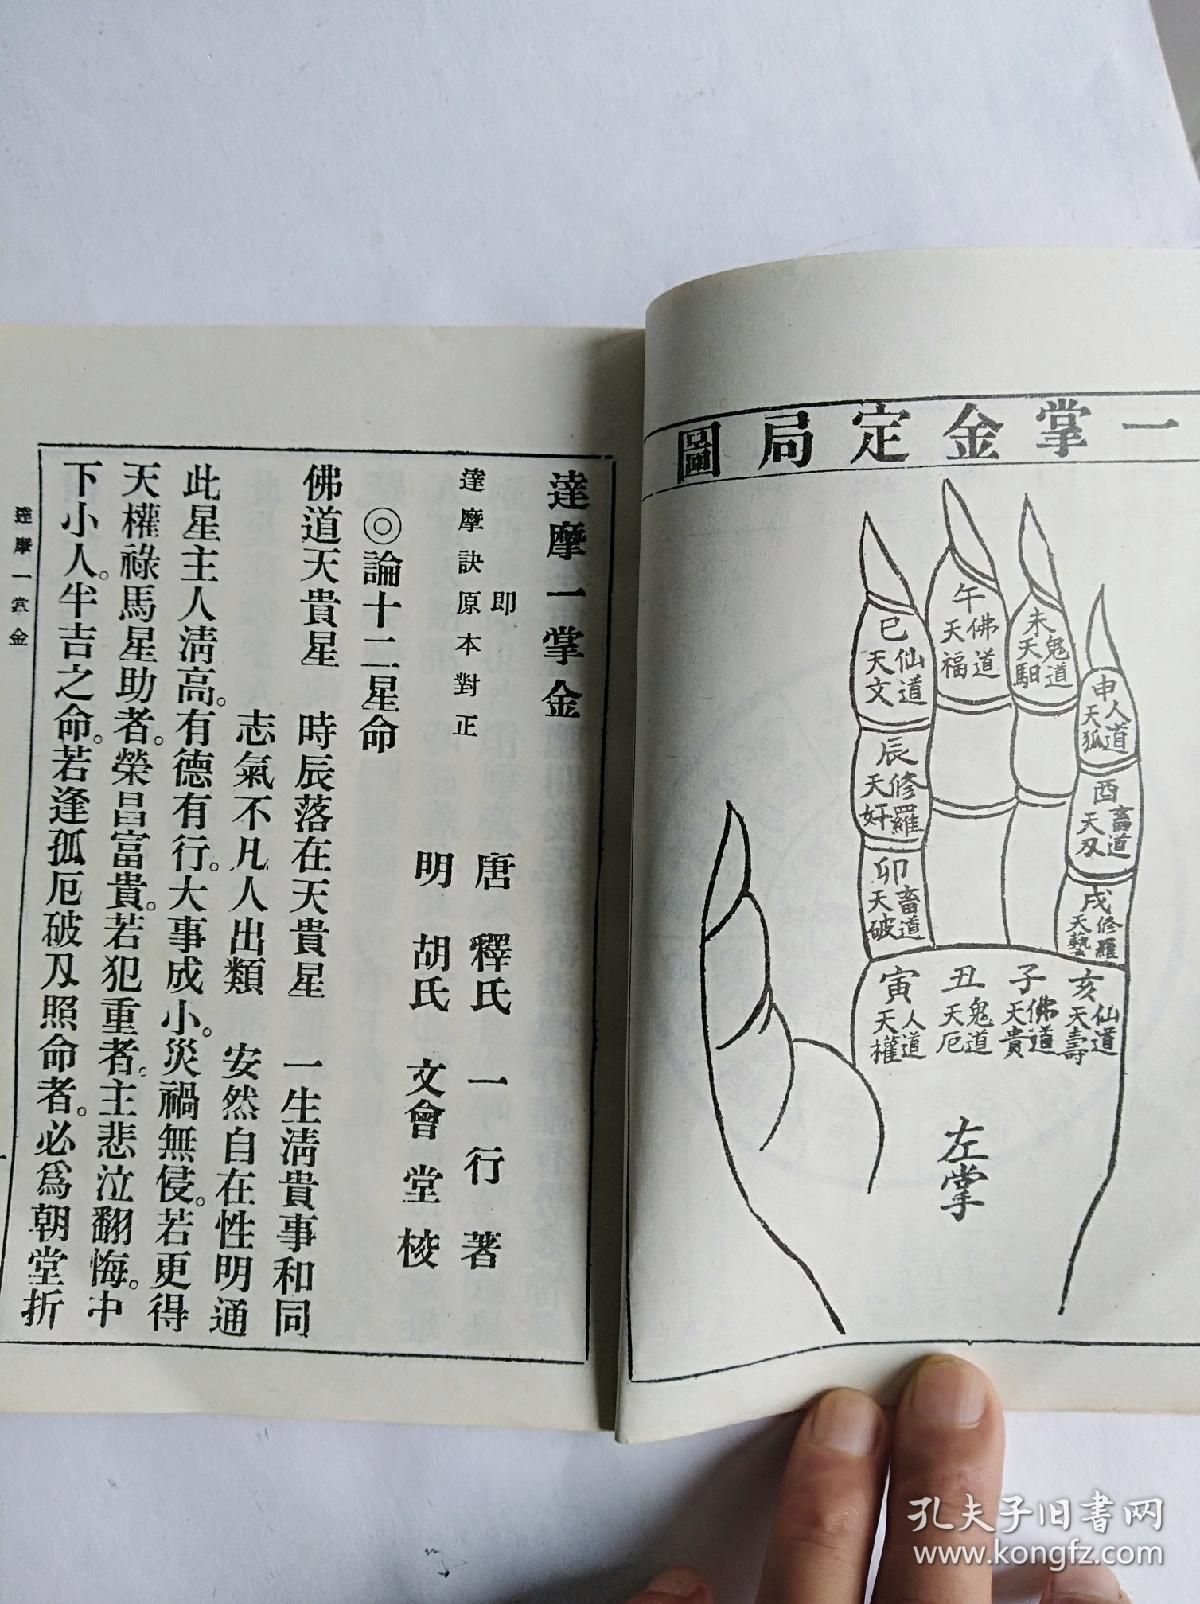 一掌金定局圖
巳 仙道 天文
午 佛道 天福
未 鬼道 天馹
申 人道 天孤
辰 修羅 天奸
酉 畜道 天刃
卯 畜道 天破
戌 修羅 天藝
寅 人道 天權
丑 鬼道 天厄
子 佛道 天貴
亥 仙道 天壽
左掌
達摩一掌金
即
達摩訣原本對正
唐 釋氏 一行 著
明 胡氏 文會堂 校
◎論十二星命
佛道天貴星 時辰落在天貴星 一生淸貴事和同
志氣不凡人出類 安然自在性明通
此星主人淸高。有德有行。大事成小。災禍無侵。若更得
天權祿馬星助者。榮昌富貴。若犯重者。主悲泣翻悔。中
下小人。半吉之命。若逢孤厄破刃照命者。必爲朝堂折
達摩一掌金
一
孔夫子旧书网
www.kongfz.com